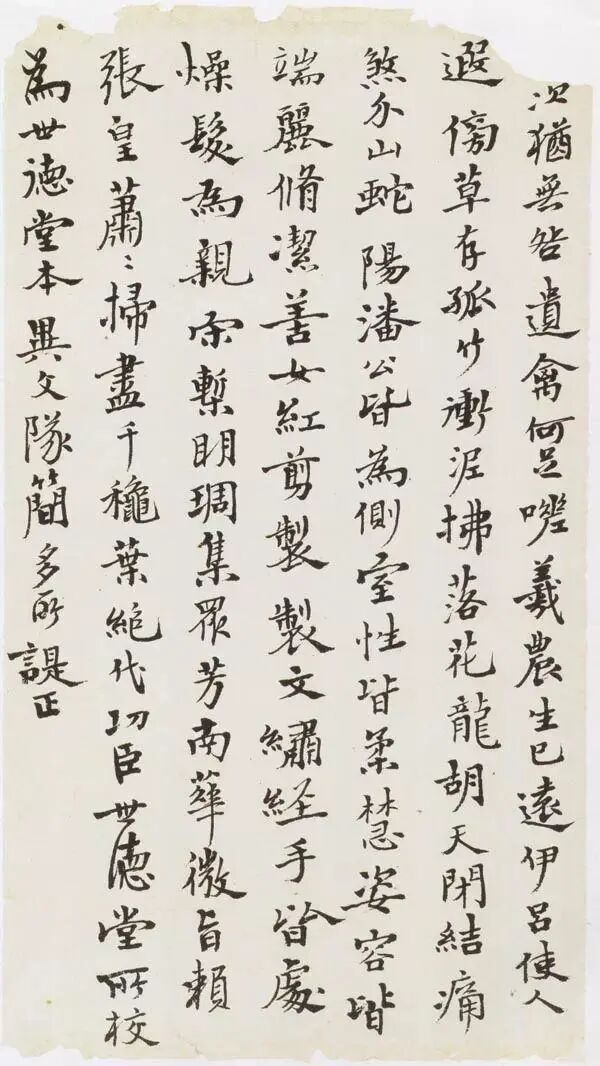 次猶無咎遺禽何足嘆羲農生已遠伊呂使人
遐傍草存孤竹衝泥拂落花龍胡天閉結痛
煞介山蛇陽潘公皆為側室性皆柔慧姿容皆
端麗脩潔善女紅剪製製文繡経手皆處
燥髮為親宗槧明琱集眾芳南華微旨賴
張皇蕭〻掃盡千龝葉絕代功臣世德堂所校
為世德堂本異文隊簡多所諟正